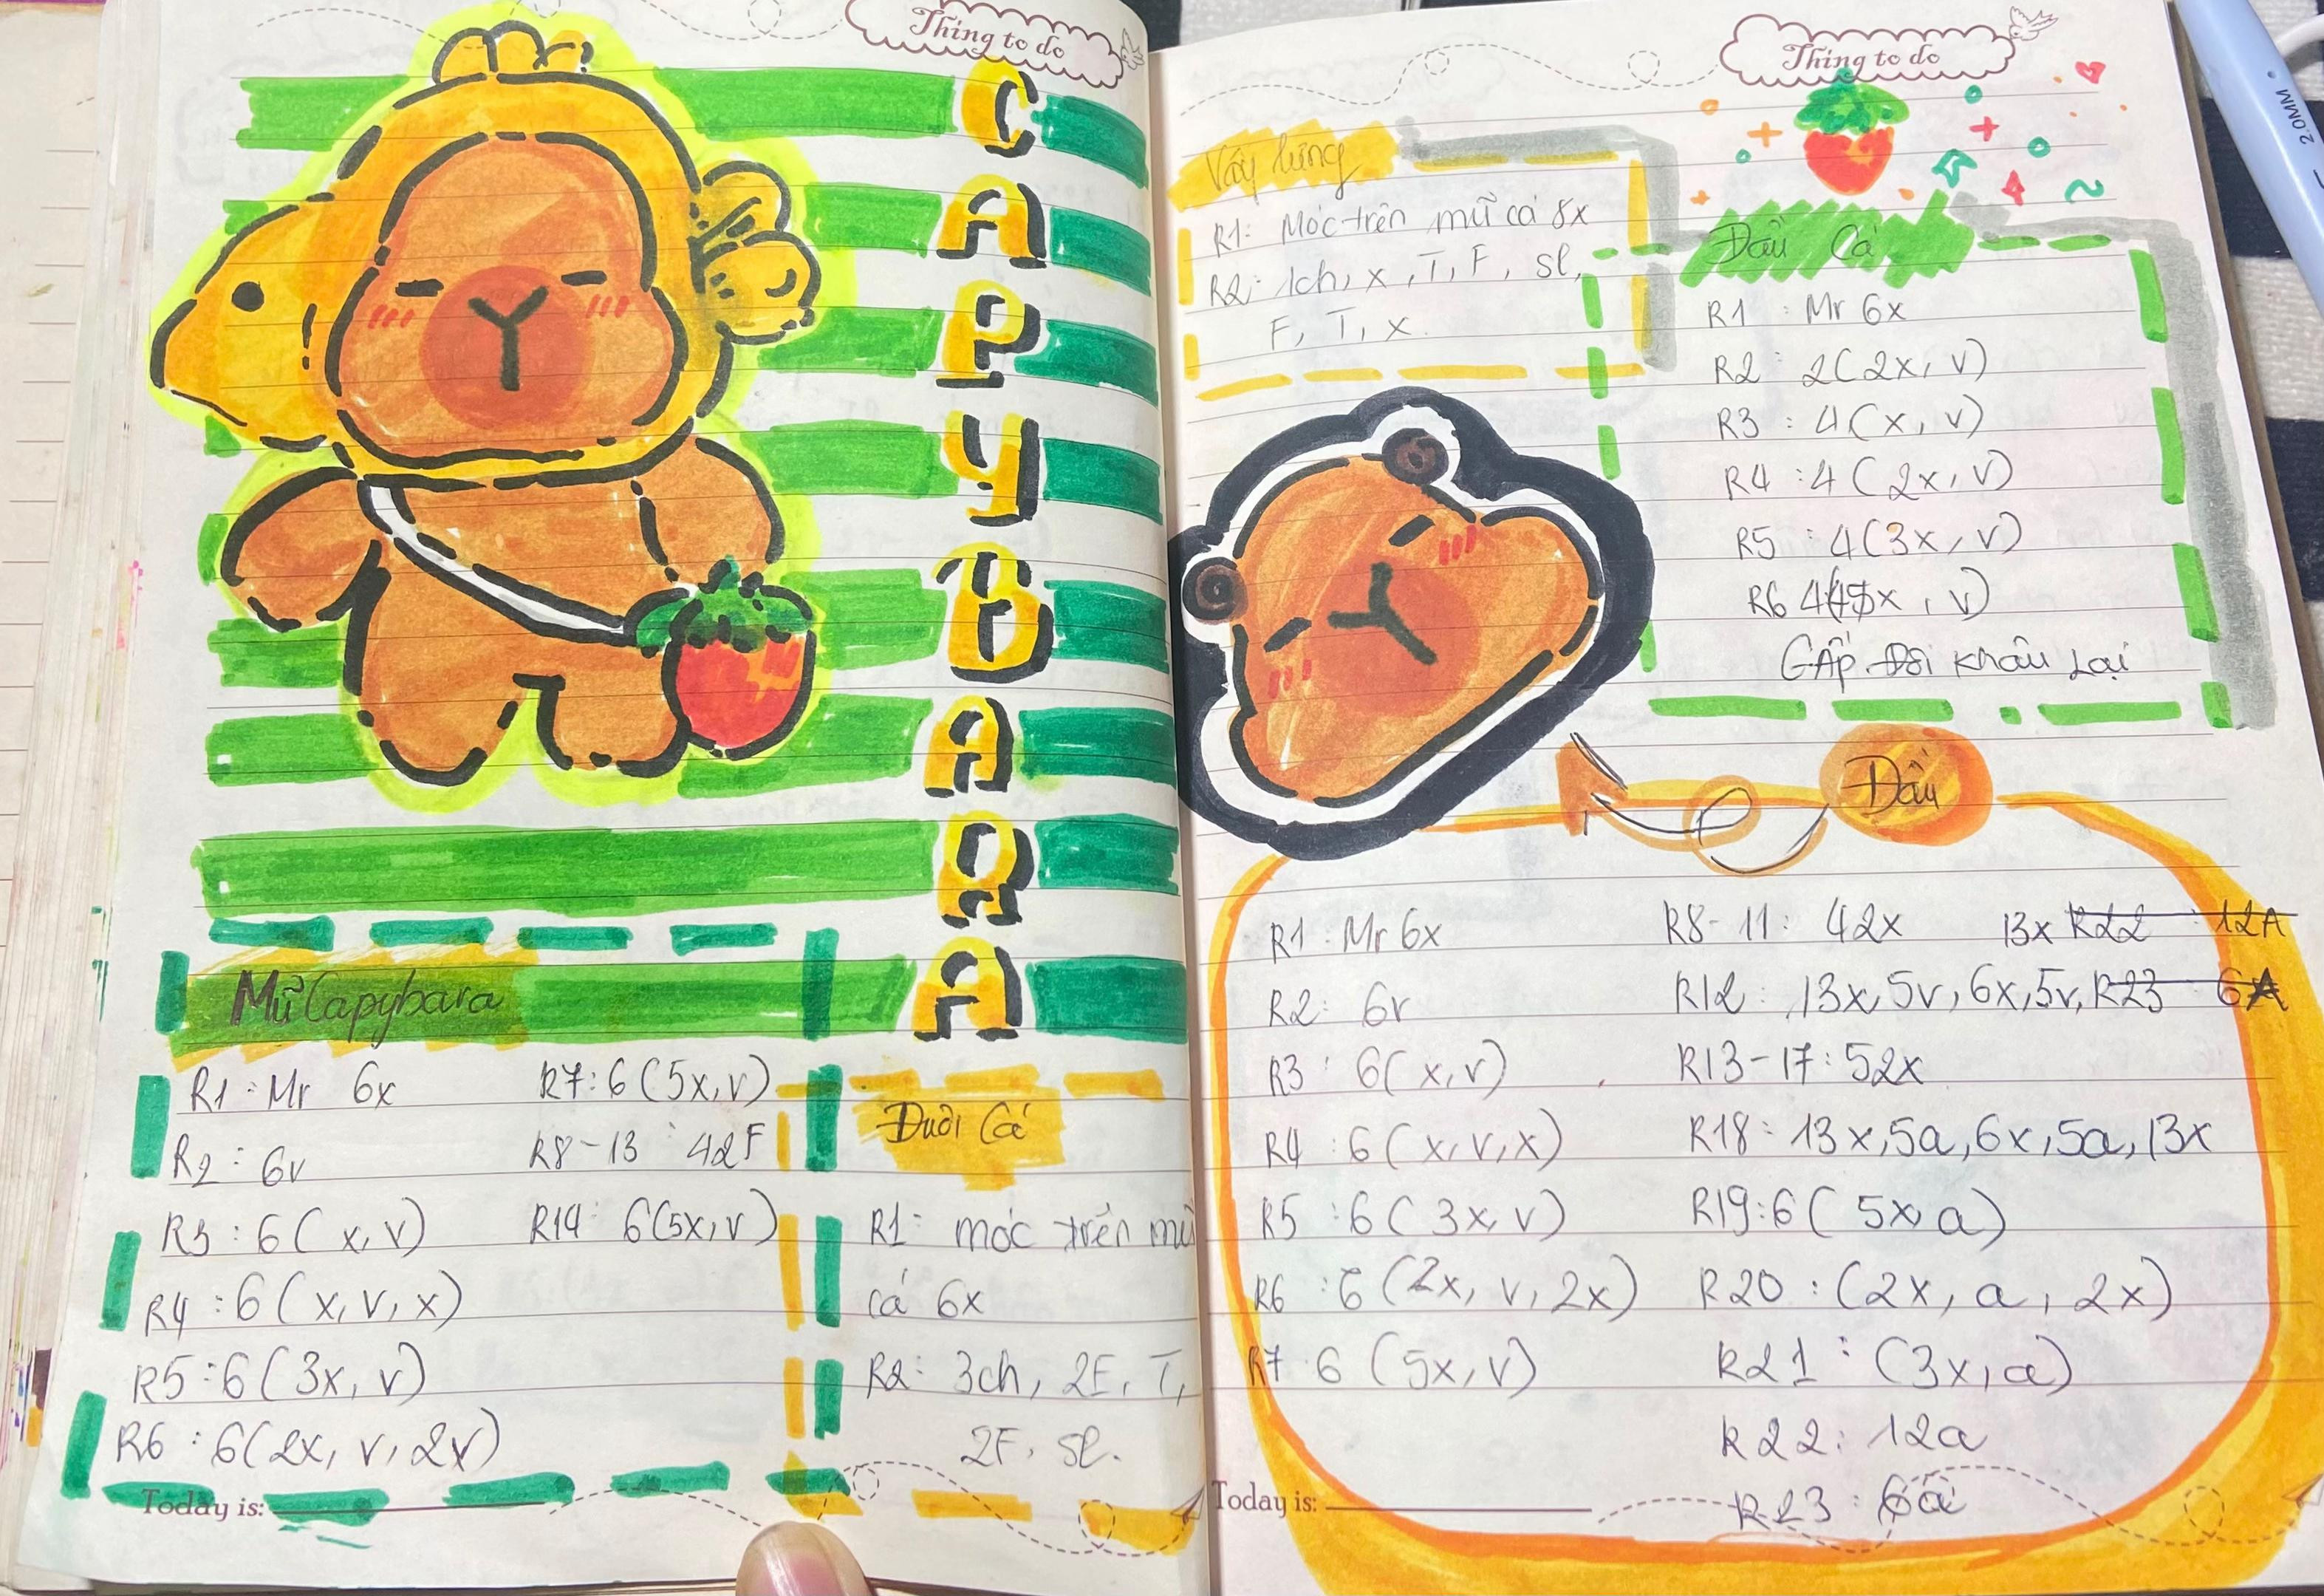 Thing to do
CAPYBARA
Mũ Capybara
R1: Mr 6x
R2: 6v
R3: 6(x, v)
R4: 6(x, v, x)
R5: 6(3x, v)
R6: 6(2x, v, 2v)
R7: 6(5x, v)
R8-13: 42F
R14: 6(5x, v)
Đuôi Cá
R1: móc trên mũ
cá 6x
R2: 3ch, 2F, T,
2F, sl.
Today is:
Thing to do
Vây lưng
R1: Móc trên mũ cá 8x
R2: 1ch, x, T, F, sl,
F, T, x.
Đầu Cá
R1: Mr 6x
R2: 2(2x, v)
R3: 4(x, v)
R4: 4(2x, v)
R5: 4(3x, v)
R6 4(x, v)
GẤP Đôi Khâu Lại
Đầu
R1: Mr 6x
R2: 6v
R3: 6(x, v)
R4: 6(x, v, x)
R5: 6(3x, v)
R6: 6(2x, v, 2x)
R7 6(5x, v)
R8-11: 42x
13x R22: 12A
R12: 13x, 5v, 6x, 5v, R23 6A
R13-17: 52x
R18: 13x, 5a, 6x, 5a, 13x
R19: 6(5x, a)
R20: (2x, a, 2x)
R21: (3x, a)
R22: 12a
R23: 6a
Today is:
2.0MM